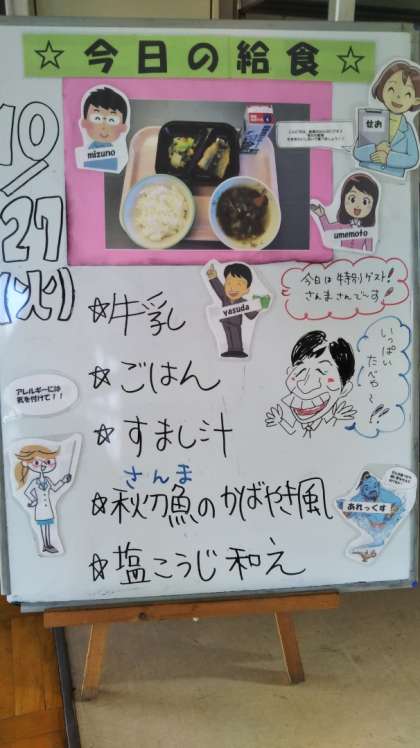 ☆今日の給食☆
10/27(火)
mizuno
せお
umemoto
yasuda
今日は特別ゲスト!
さんまさんでーす
いっぱい
たべや〜!!
アレルギーには
気を付けて!!
あれっくす
☆牛乳
☆ごはん
☆すまし汁
さんま
☆秋刀魚のかばやき風
☆塩こうじ和え